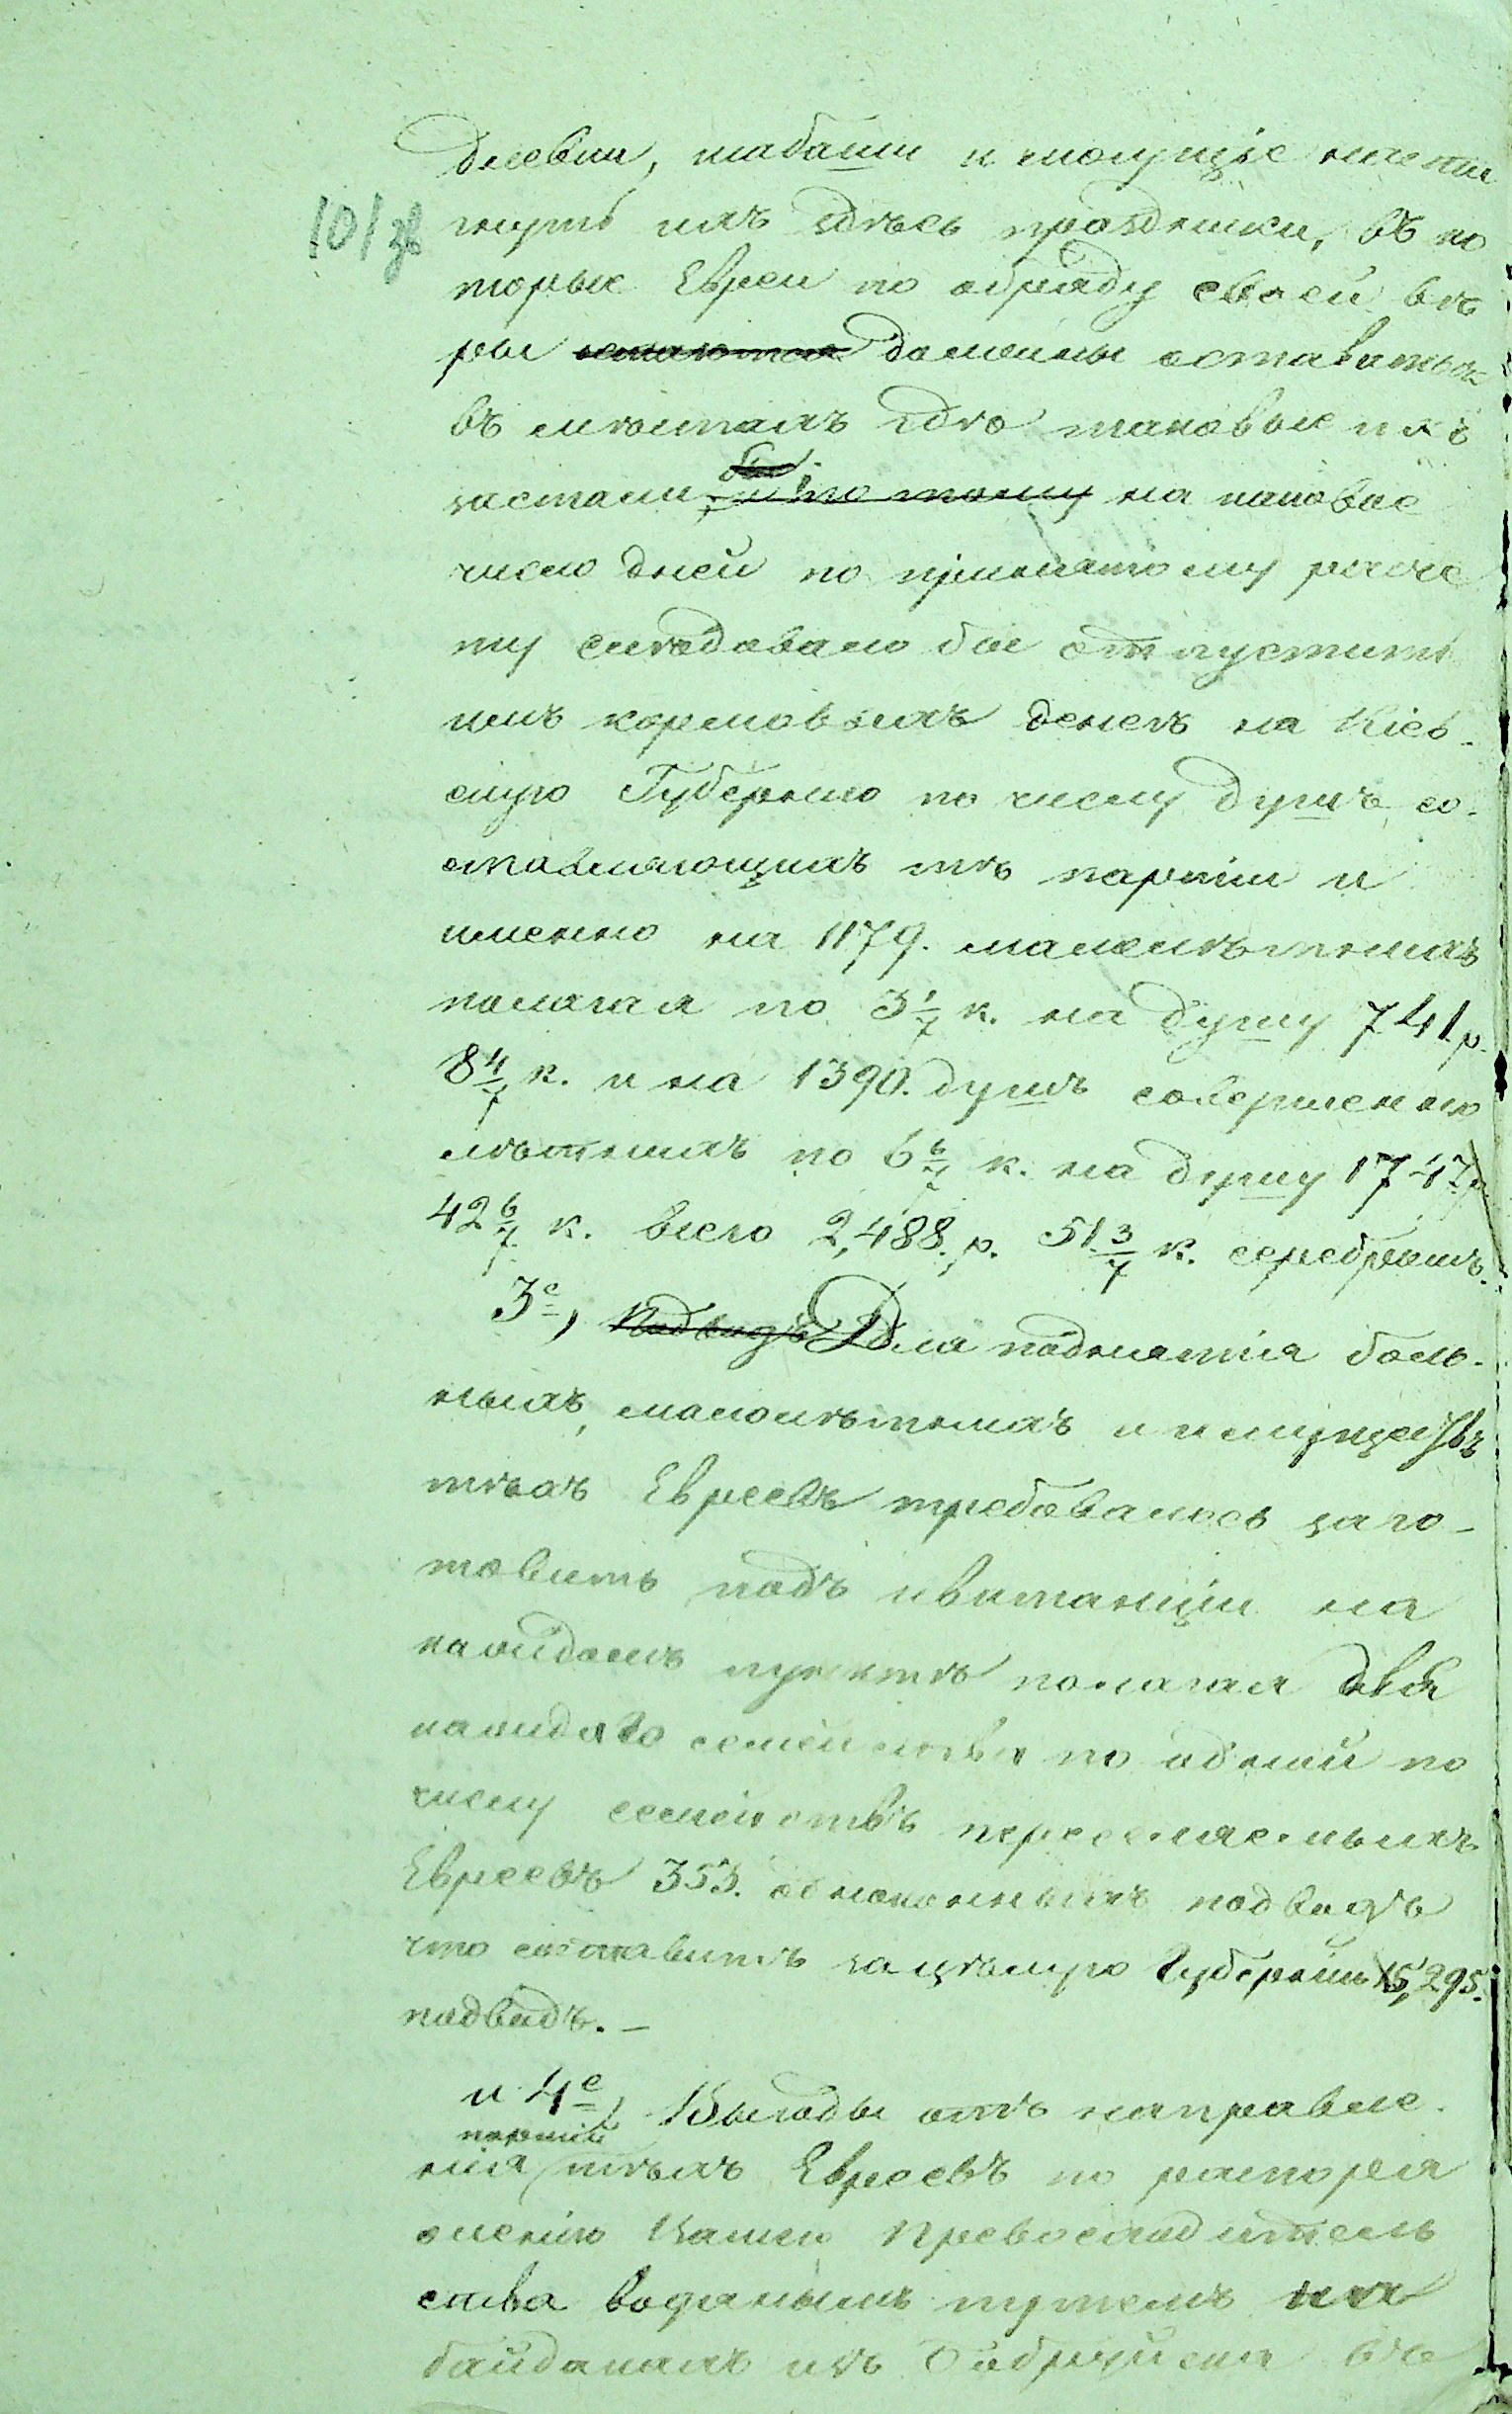 дневки, шабаши и могущіе насти
101 зв
гнуть ихъ здѣсь праздники, въ ко
торые Евреи по обряду своей вѣ
ры должны оставаться
въ мѣстахъ гдѣ таковые ихъ
застали; и по тому на каковые
число дней по принятому расче
ту слѣдовало бы отпустить
имъ кормовыхъ денегъ на Кіев-
скую Губернію по числу душъ со-
ставляющихъ тѣ партіи и
именно на 1179. малолѣтнихъ
полагая по 3 1/7 к. на душу 741 р.
8 4/7 к. и на 1390. душъ совершенно
лѣтнихъ по 6 6/7 к. на душу 1747 р.
42 6/7 к. всего 2,488. р. 51 3/7 к. серебромъ.
3е, Подводъ Для поднятія боль-
ныхъ, малолѣтнихъ и имуществъ
тѣхъ Евреевъ требовалось заго-
товить подъ квитанціи на
каждомъ пунктѣ полагая для
каждаго семейства по одной по
числу семействъ переселяемыхъ
Евреевъ 353. одноконныхъ подводъ
что составитъ за цѣлую Губернію 15,295.
подводъ. —
и 4е, Выгоды отъ направле-
партій
нія тѣхъ Евреевъ по распоря
женію Вашего Превосходитель
ства водянымъ путемъ на
байдакахъ изъ Бобруйска